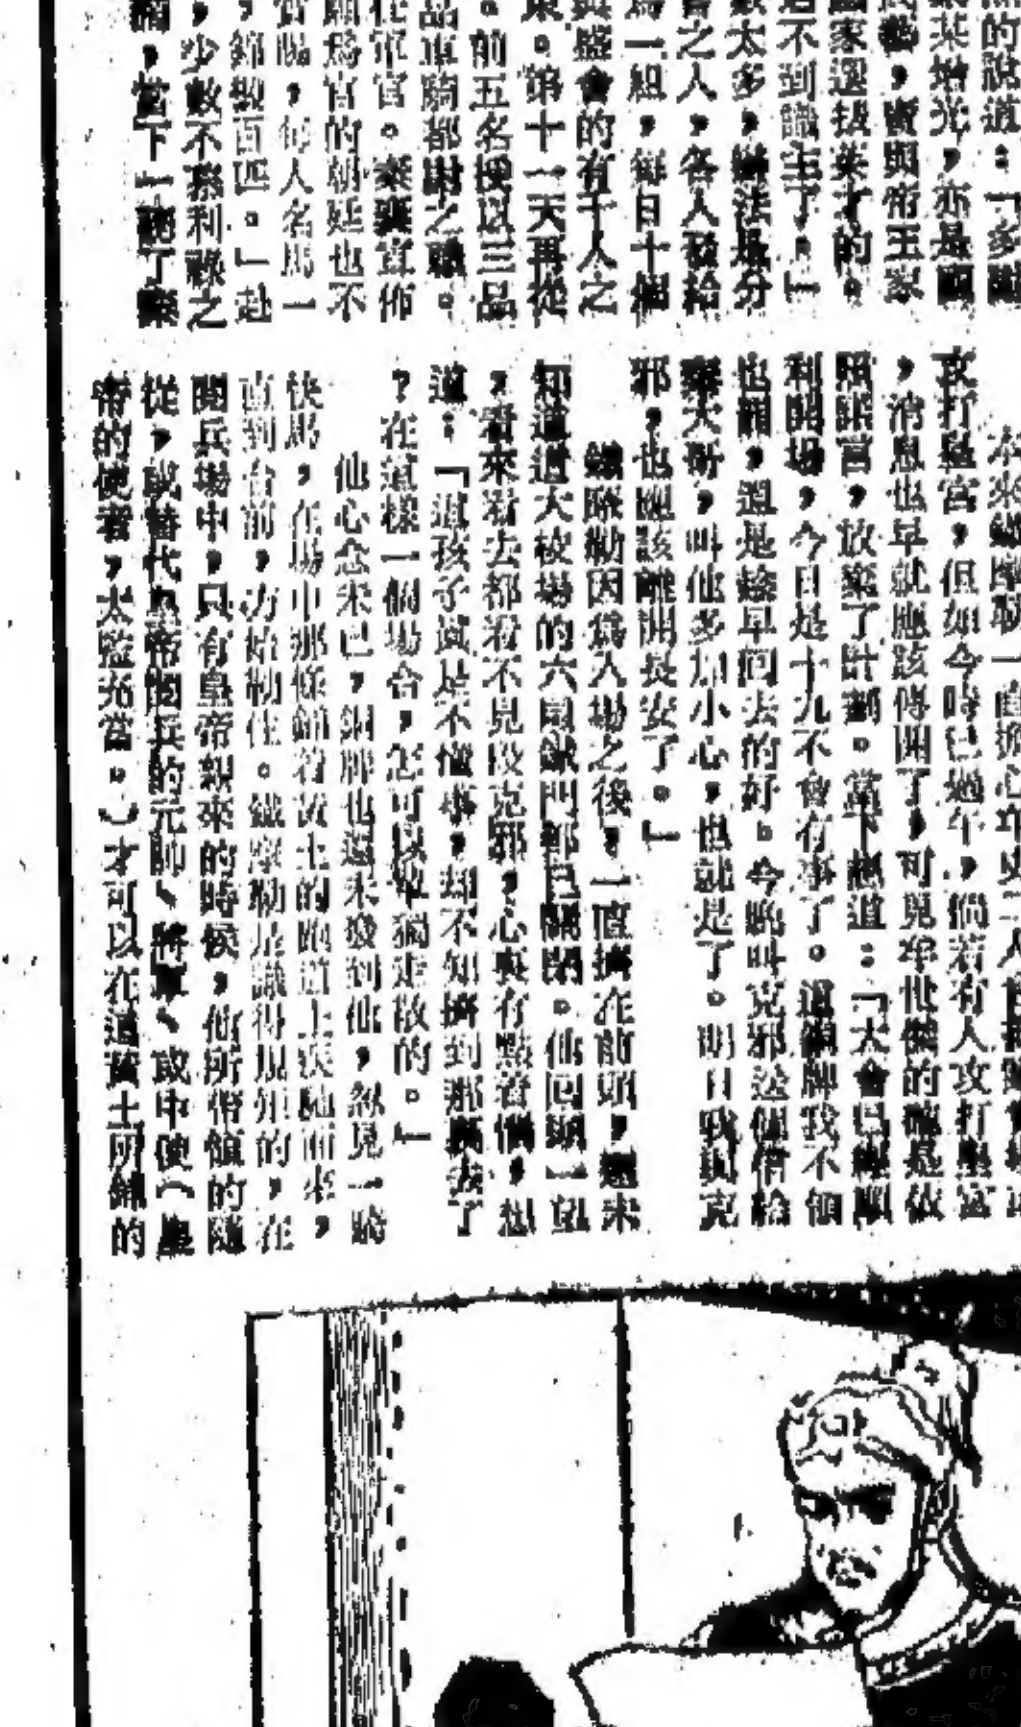 的說道：「多
某增光，亦是國
，實與帝王家
國家選拔英才的。
不到識主了。」
太多，辦法是分
之人，各人發給
一組，每日十個
盛會的有千人之
。第十一天再從
。前五名授以三品
品軍騎都尉之職。
任軍官。秦襄宣佈
願為官的朝廷也不
賞賜，每人名馬一
，錦緞百匹。」赴
，少數不務利祿之
，當下一聽了
本來鐵摩勒一直擔心
攻打皇宮，但如今時已過午，倘若有人攻打皇宮
，消息也早就應該傳開了，可見牟世傑的確是依
照諾言，放棄了計劃。當下想道：「大會已經順
利開場，今日是十九不會有事了。這銅牌我不領
也罷，還是趁早回去的好。今晚叫克邪送個信給
秦大哥，叫他多加小心，也就是了。明日我與克
邪，也應該離開長安了。」
鐵摩勒因為入場之後，一直擠在前頭，還未
知道這大校場的六扇鐵門都已關閉。他回頭一望
，看來看去都看不見段克邪，心裏有點着惱，想
道：「這孩子真是不懂事，却不知擠到那裏去了
？在這樣一個場合，怎可以單獨走散的。」
他心念未已，銅牌也還未發到他，忽見一騎
快馬，在場中那條鋪着黃土的跑道上疾馳而來，
直到台前，方始勒住。鐵摩勒是識得規矩的，在
閱兵場中，只有皇帝親來的時候，他所帶領的隨
從，或替代皇帝閱兵的元帥、將軍、或中使（皇
帝的使者，太監充當。）才可以在這黃土所鋪的